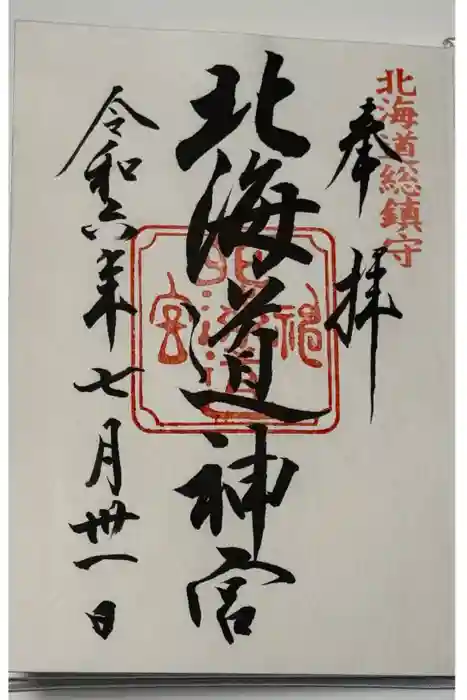 北海道総鎮守
奉拝
北海道神宮
令和六年七月卅一日